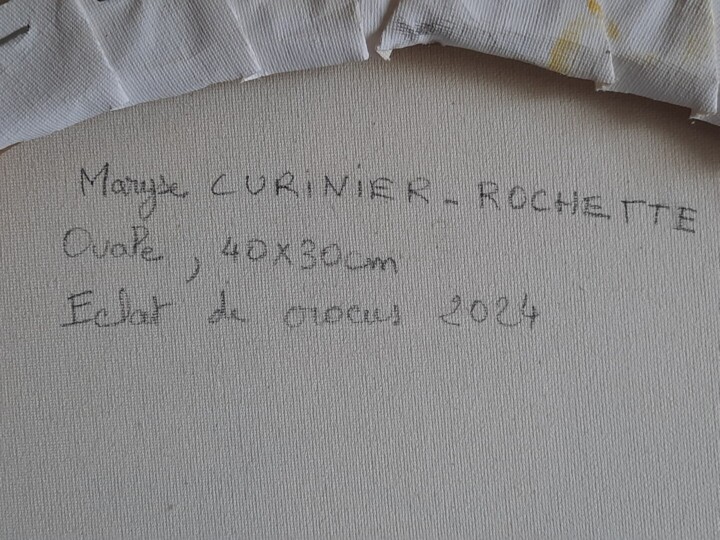 Maryse CURINIER - ROCHETTE
Ovale, 40X30cm
Eclat de crocus 2024